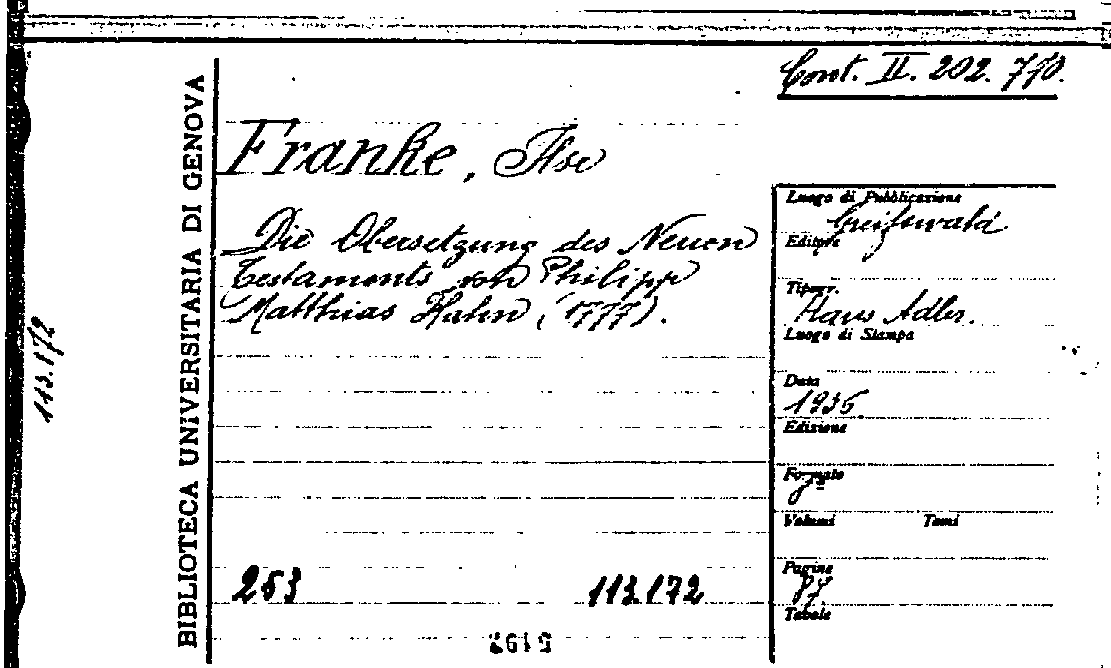 Cont. II. 202. 770.
BIBLIOTECA UNIVERSITARIA DI GENOVA
113.172
Franke, Ilse
Die Übersetzung des Neuen
Testaments von Philipp
Matthias Hahn (1777).
253
113.172
Luogo di Pubblicazione
Greifswald
Editore
Tipogr.
Hans Adler.
Luogo di Stampa
Data
1936
Edizione
Formato
8º
Volumi Tomi
Pagine
87
Tabole